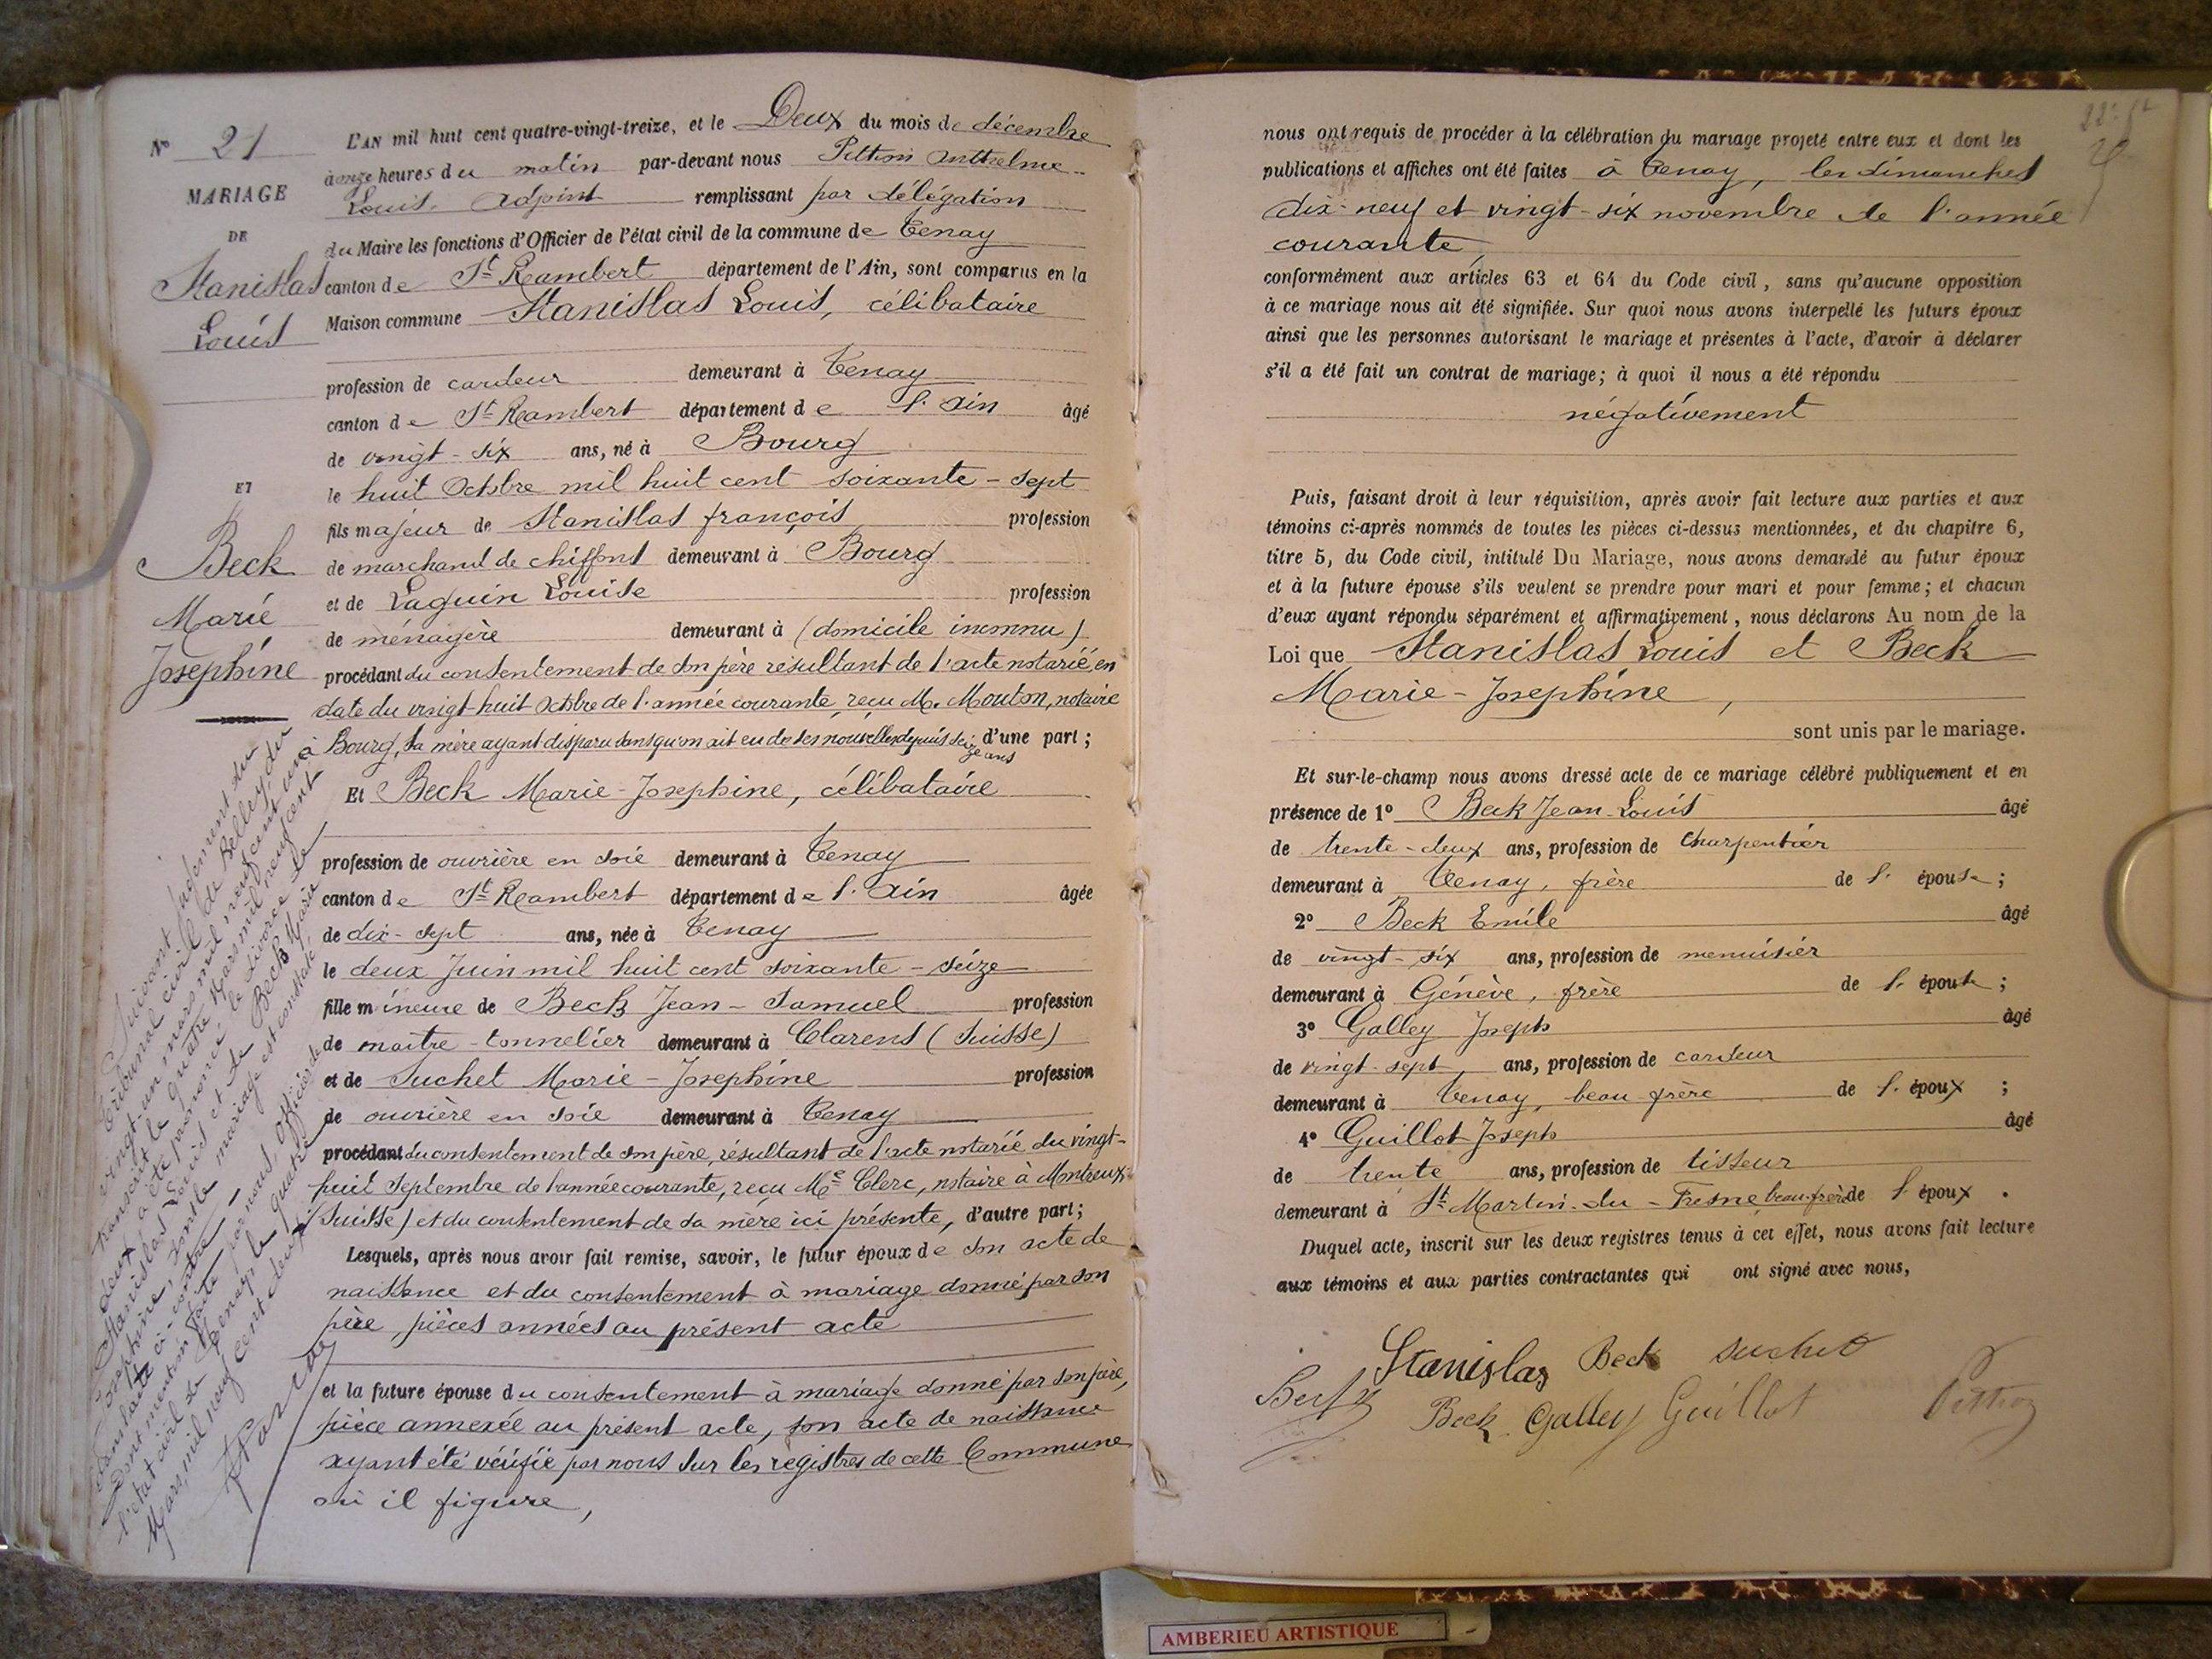 N° 21
MARIAGE
DE
Stanislas
Louis
ET
Beck
Marie
Josephine
L'AN mil huit cent quatre-vingt-treize, et le Deux du mois de décembre
à onze heures du matin par-devant nous Anthelme
Louis, Adjoint remplissant par délégation
du Maire les fonctions d'Officier de l'état civil de la commune de Tenay
canton de St Rambert département de l'Ain, sont comparus en la
Maison commune Stanislas Louis, célibataire
profession de cardeur demeurant à Tenay
canton de St Rambert département de l'Ain âgé
de vingt-six ans, né à Bourg
le huit Octobre mil huit cent soixante-sept
fils majeur de Stanislas françois profession
de marchand de chiffons demeurant à Bourg
et de Laguin Louise profession
de ménagère demeurant à (domicile inconnu)
procédant du consentement de son père résultant de l'acte notarié en
date du vingt-huit Octobre de l'année courante, reçu Me Mouton, notaire
à Bourg, sa mère ayant disparu sans qu'on ait eu de ses nouvelles depuis seize ans d'une part ;
Et Beck Marie-Josephine, célibataire
profession de ouvrière en soie demeurant à Tenay
canton de St Rambert département de l'Ain âgée
de dix-sept ans, née à Tenay
le deux Juin mil huit cent soixante-seize
fille mineure de Beck Jean-Samuel profession
de maitre-tonnelier demeurant à Clarens (Suisse)
et de Suchet Marie-Josephine profession
de ouvrière en soie demeurant à Tenay
procédant du consentement de son père, résultant de l'acte notarié du vingt-
huit Septembre de l'année courante, reçu Me Clerc, notaire à Montreux
(Suisse) et du consentement de sa mère ici présente, d'autre part ;
Lesquels, après nous avoir fait remise, savoir, le futur époux de son acte de
naissance et du consentement à mariage donné par son
père, pièces annexées au présent acte
et la future épouse du consentement à mariage donné par son père,
pièce annexée au présent acte, son acte de naissance
ayant été vérifié par nous sur les registres de cette Commune
où il figure,
Suivant jugement du
tribunal civil de Belley, du
vingt-un mars mil neuf cent un
transcrit le quatre Mars mil neuf cent
deux, a été prononcé le divorce de
Stanislas Louis et de Beck Marie
Josephine, dont le mariage est constaté
dans l'acte ci-contre
Dont mention faite par nous, officier de
l'état civil de Tenay le quatre
Mars mil neuf cent deux
nous ont requis de procéder à la célébration du mariage projeté entre eux et dont les
publications et affiches ont été faites à Tenay, les dimanches
dix-neuf et vingt-six novembre de l'année
courante,
conformément aux articles 63 et 64 du Code civil, sans qu'aucune opposition
à ce mariage nous ait été signifiée. Sur quoi nous avons interpellé les futurs époux
ainsi que les personnes autorisant le mariage et présentes à l'acte, d'avoir à déclarer
s'il a été fait un contrat de mariage ; à quoi il nous a été répondu
négativement
Puis, faisant droit à leur réquisition, après avoir fait lecture aux parties et aux
témoins ci-après nommés de toutes les pièces ci-dessus mentionnées, et du chapitre 6,
titre 5, du Code civil, intitulé Du Mariage, nous avons demandé au futur époux
et à la future épouse s'ils veulent se prendre pour mari et pour femme ; et chacun
d'eux ayant répondu séparément et affirmativement, nous déclarons Au nom de la
Loi que Stanislas Louis et Beck
Marie-Josephine,
sont unis par le mariage.
Et sur-le-champ nous avons dressé acte de ce mariage célébré publiquement et en
présence de 1° Beck Jean-Louis âgé
de trente-deux ans, profession de Charpentier
demeurant à Tenay, frère de l'épouse ;
2° Beck Emile âgé
de vingt-six ans, profession de menuisier
demeurant à Génève, frère de l'épouse ;
3° Galley Joseph âgé
de vingt-sept ans, profession de cardeur
demeurant à Tenay, beau frère de l'époux ;
4° Guillot Joseph âgé
de trente ans, profession de tisseur
demeurant à St Martin-du-Fresne, beau-frère de l'époux.
Duquel acte, inscrit sur les deux registres tenus à cet effet, nous avons fait lecture
aux témoins et aux parties contractantes qui ont signé avec nous,
Stanislas Beck Suchet
Beck Galley Guillot
AMBERIEU ARTISTIQUE